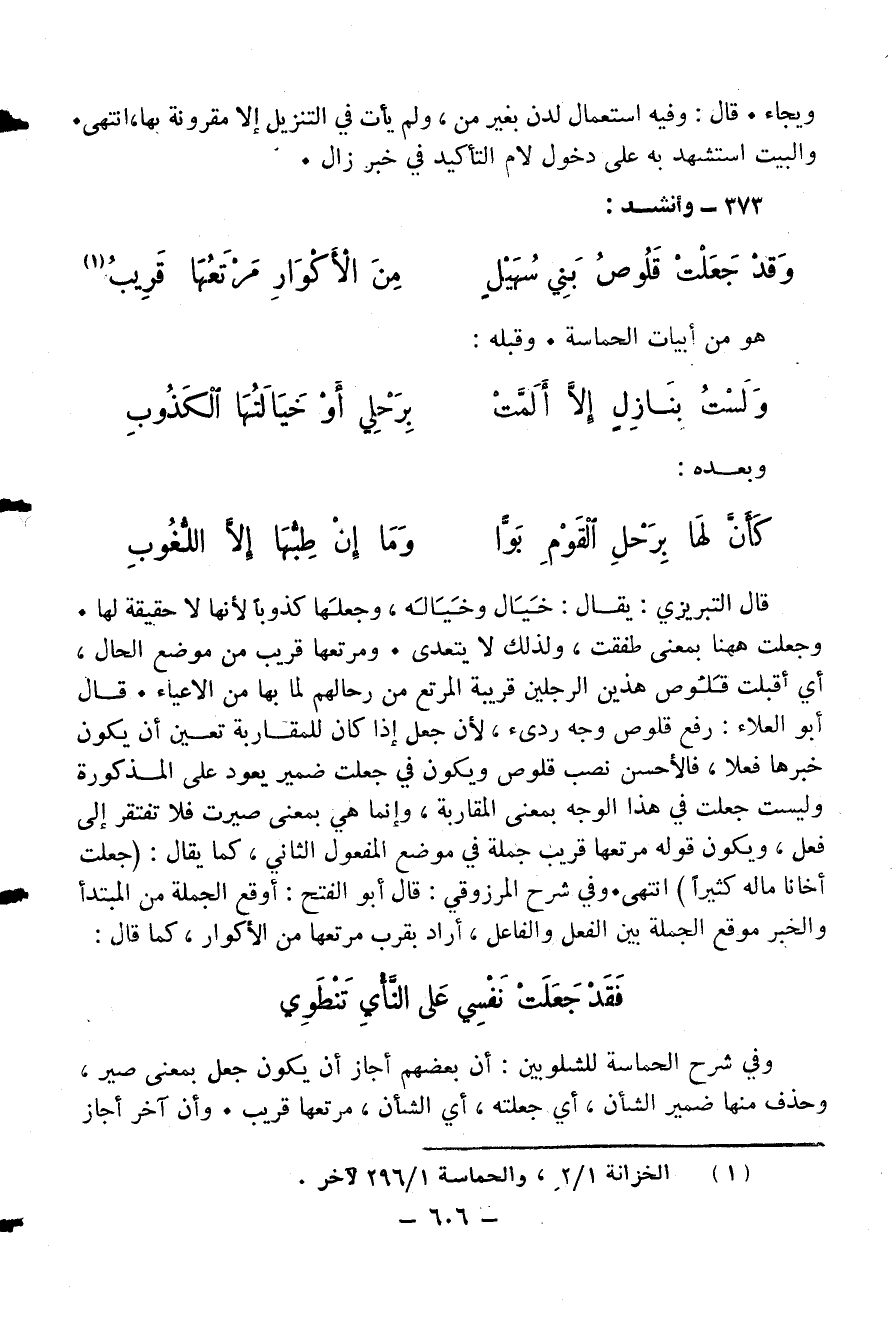 ويجاء • قال : وفيه استعمال لدن بغير من ، ولم يأت في التنزيل إلا مقرونة بها،انتهى•
والبيت استشهد به على دخول لام التأكيد في خبر زال •
٣٧٣ ــ وأنشــد :
وَقَدْ جَعَلَتْ قَلُوصُ بَنِي سُهَيْلٍ مِنَ الْأَكْوَارِ مَرْتَعُهَا قَرِيبُ(١)
هو من أبيات الحماسة • وقبله :
وَلَسْتُ بِنَــازِلٍ إِلاَّ أَلَمَّتْ بِرَحْلِي أَوْ خَيَالَتُهَا ٱلْكَذُوبِ
وبعــده :
كَأَنَّ لَهَا بِرَحْلِ ٱلْقَوْمِ بَوًّا وَمَا إِنْ طِبُّهَا إِلاَّ اللُّغُوبِ
قال التبريزي : يقــال : خَيَال وخَيَـالَه ، وجعلَـها كذوباً لأنها لا حقيقة لها •
وجعلت ههنا بمعنى طفقت ، ولذلك لا يتعدى • ومرتعها قريب من موضع الحال ،
أي أقبلت قَـلُـوص هذين الرجلين قريبة المرتع من رحالهم لما بها من الاعياء • قــال
أبو العلاء : رفع قلوص وجه ردىء ، لأن جعل إذا كان للمقــاربة تعــين أن يكون
خبرها فعلا ، فالأحسن نصب قلوص ويكون في جعلت ضمير يعود على المــذكورة
وليست جعلت في هذا الوجه بمعنى المقاربة ، وإنما هي بمعنى صيرت فلا تفتقر إلى
فعل ، ويكون قوله مرتعها قريب جملة في موضع المفعول الثاني ، كما يقال : (جعلت
أخانا ماله كثيراً ) انتهى•وفي شرح المرزوقي : قال أبو الفتح : أوقع الجملة من المبتدأ
والخبر موقع الجملة بين الفعل والفاعل ، أراد بقرب مرتعها من الأكوار ، كما قال :
فَقَدْ جَعَلَتْ نَفْسِي عَلَى النَّأْيِ تَنْطَوِي
وفي شرح الحماسة للشلوبين : أن بعضهم أجاز أن يكون جعل بمعنى صير ،
وحذف منها ضمير الشأن ، أي جعلته ، أي الشأن ، مرتعها قريب • وأن آخر أجاز
(١) الخزانة ٢/١ ، والحماسة ٢٩٦/١ لآخر .
– ٦٠٦ –